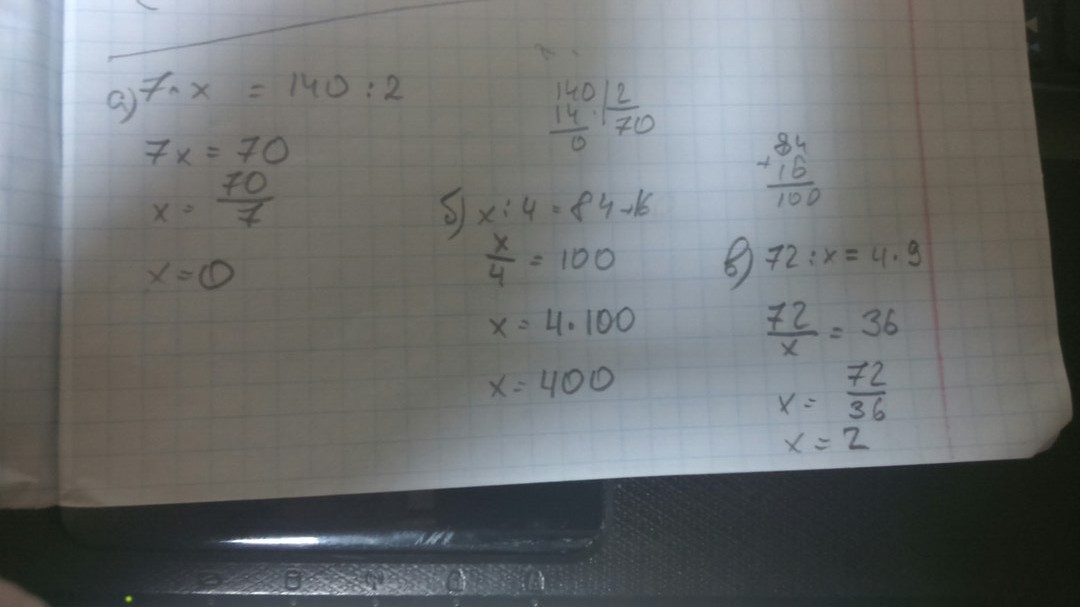 а) 7 · x = 140 : 2
7x = 70
x = 70/7
x = 0
140 | 2
14 | 70
0
б) x : 4 = 84 + 16
x/4 = 100
x = 4 · 100
x = 400
84
+ 16
100
в) 72 : x = 4 · 9
72/x = 36
x = 72/36
x = 2